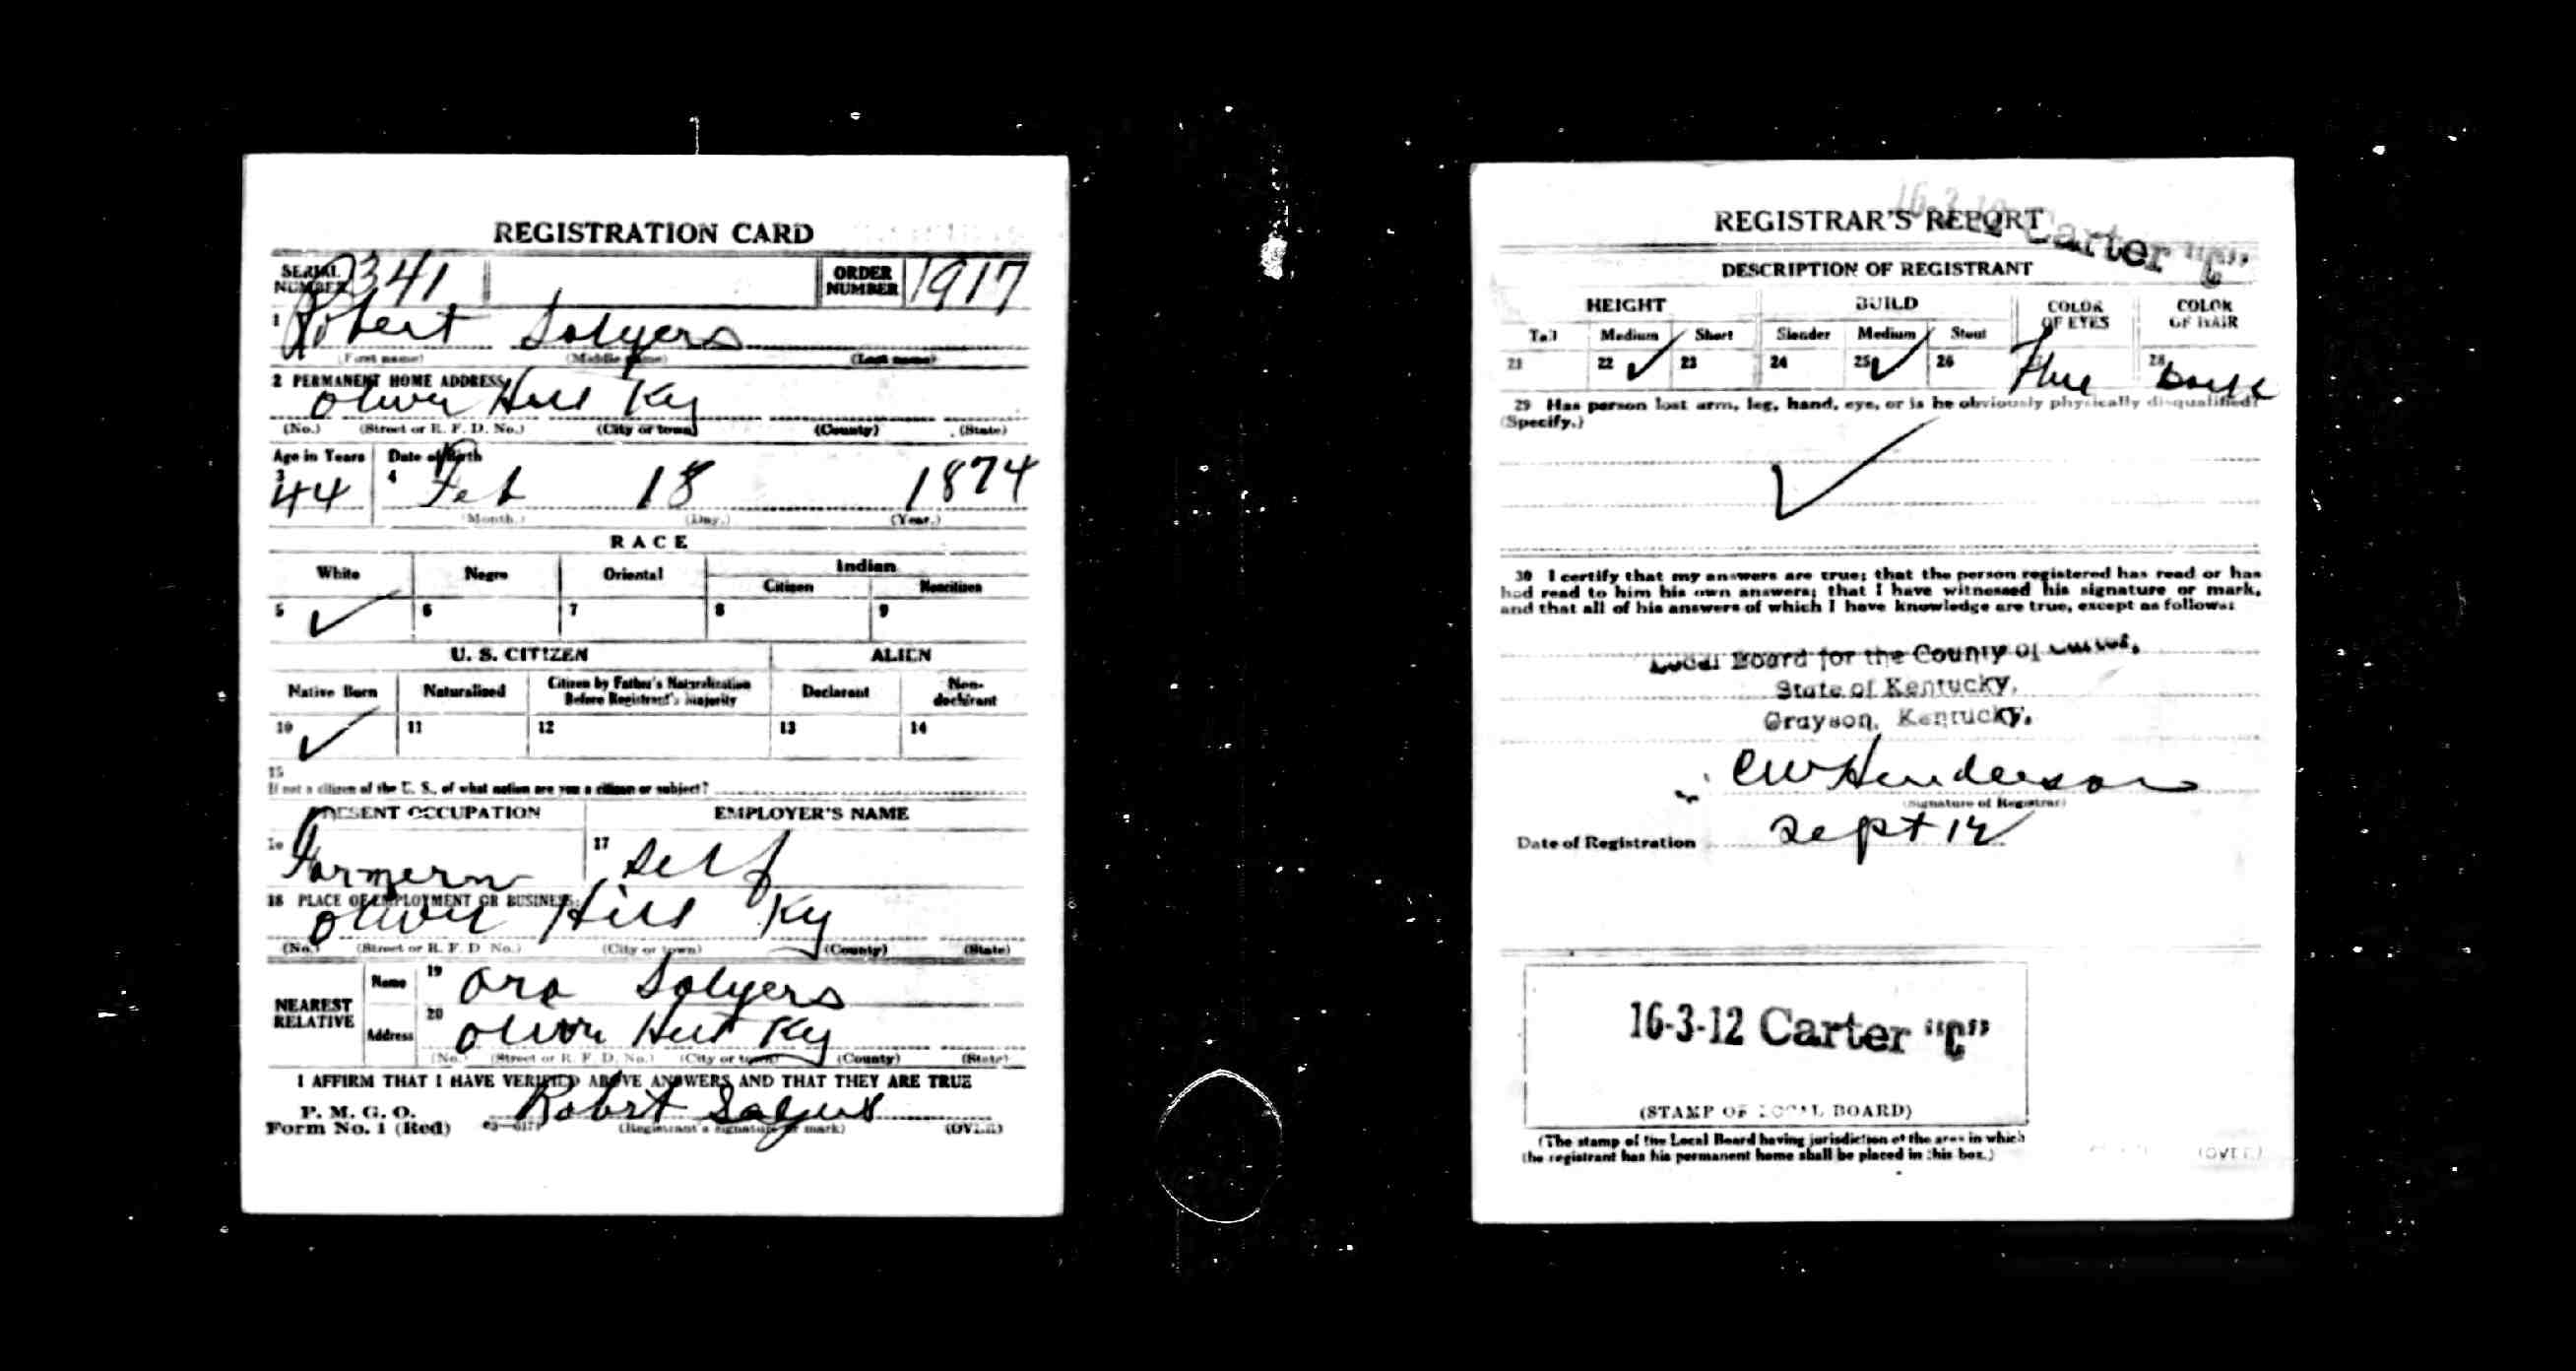 REGISTRATION CARD
SERIAL NUMBER 341 ORDER NUMBER 1917
1 Robert Solyers
(First name) (Middle name) (Last name)
2 PERMANENT HOME ADDRESS
Olive Hill Ky
(No.) (Street or R. F. D. No.) (City or town) (County) (State)
Age in Years Date of Birth
3 44 4 Feb 18 1874
(Month.) (Day.) (Year.)
RACE
White Negro Oriental Indian
Citizen Noncitizen
5 ✓ 6 7 8 9
U. S. CITIZEN ALIEN
Native Born Naturalized Citizen by Father's Naturalization Before Registrant's Majority Declarant Non-declarant
10 ✓ 11 12 13 14
15
If not a citizen of the U. S., of what nation are you a citizen or subject?
PRESENT OCCUPATION EMPLOYER'S NAME
16 Farmern 17 Self
18 PLACE OF EMPLOYMENT OR BUSINESS:
Olive Hill Ky
(No.) (Street or R. F. D. No.) (City or town) (County) (State)
NEAREST RELATIVE
Name 19 Ora Solyers
Address 20 Olive Hill Ky
(No.) (Street or R. F. D. No.) (City or town) (County) (State)
I AFFIRM THAT I HAVE VERIFIED ABOVE ANSWERS AND THAT THEY ARE TRUE
P. M. G. O.
Form No. 1 (Red) Robert
(Registrant's signature or mark) (OVER)
16-3-12 Carter "C"
REGISTRAR'S REPORT
DESCRIPTION OF REGISTRANT
HEIGHT BUILD COLOR OF EYES COLOR OF HAIR
Tall Medium Short Slender Medium Stout
21 22 ✓ 23 24 25 ✓ 26 28
29 Has person lost arm, leg, hand, eye, or is he obviously physically disqualified?
(Specify.)
✓
30 I certify that my answers are true; that the person registered has read or has
had read to him his own answers; that I have witnessed his signature or mark,
and that all of his answers of which I have knowledge are true, except as follows:
Local Board for the County of Carter,
State of Kentucky,
Grayson, Kentucky.
CW Henderson
(Signature of Registrar)
Date of Registration Sept 12
16-3-12 Carter "C"
(STAMP OF LOCAL BOARD)
(The stamp of the Local Board having jurisdiction of the area in which
the registrant has his permanent home shall be placed in this box.)
(OVER)